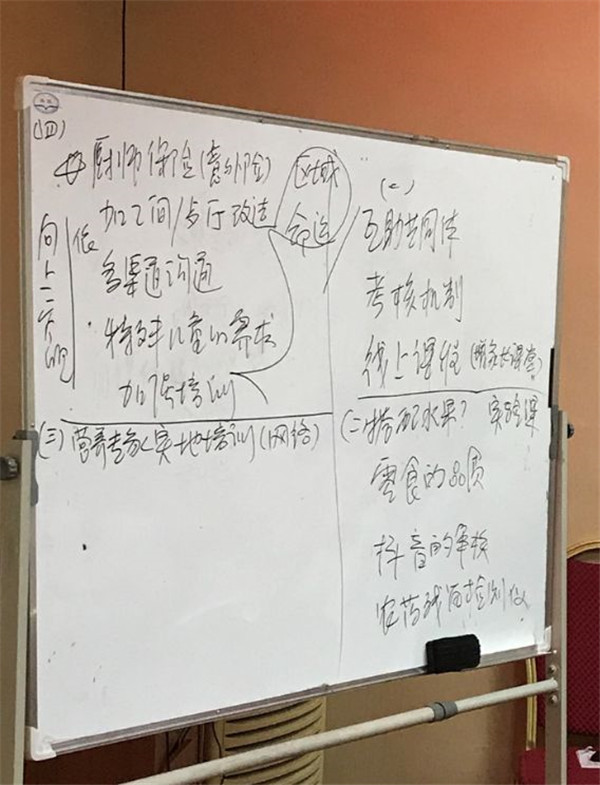 (四)
厨师保险(意外险)
加工间/餐厅改造
多渠道沟通
特殊儿童的需求
加强培训
区域
(三)营养专家实地培训(网络)
(一)
互助共同体
考核机制
线上课程(
(二)搭配水果? 实验课
零食的品质
抖音的审核
农药残留检测仪